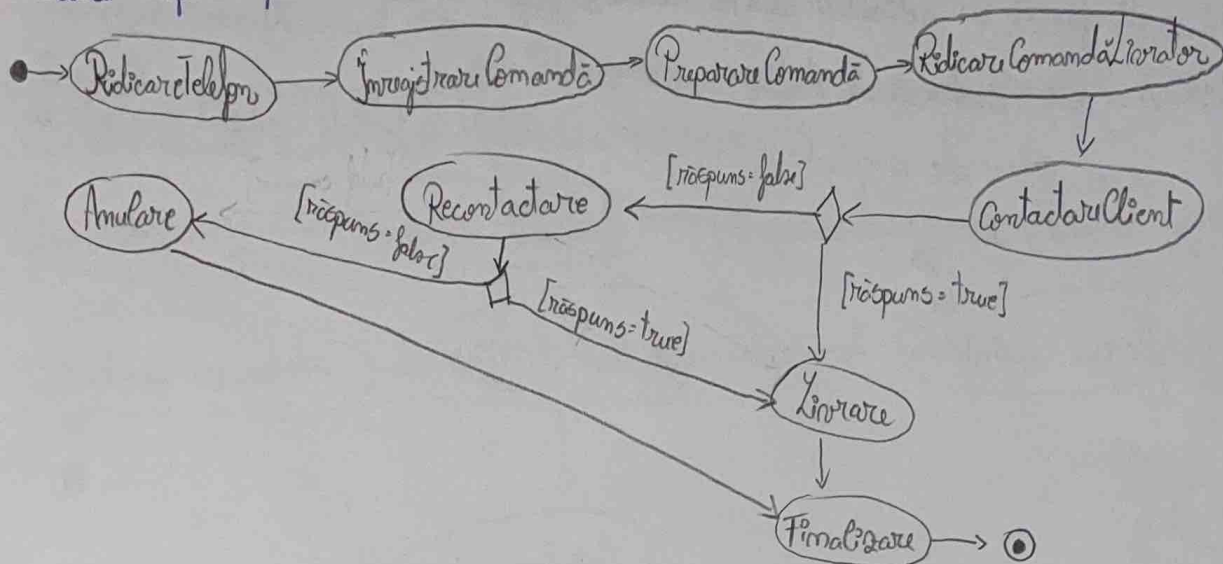 RidicareTelefon
ÎnregistrareComandă
PreparareComandă
RidicareComandăLivrator
ContactareClient
[răspuns=false]
Recontactare
[răspuns=false]
Anulare
[răspuns=true]
[răspuns=true]
Livrare
Finalizare